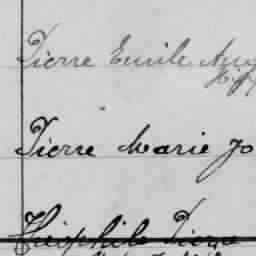 Pierre Emile Aug
Pierre Marie Jo
Théophile Pierre